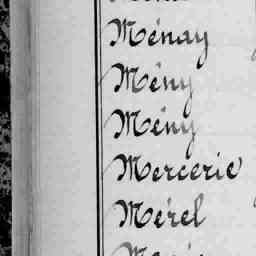 Ménay
Mény
Mény
Mercerie
Mérel